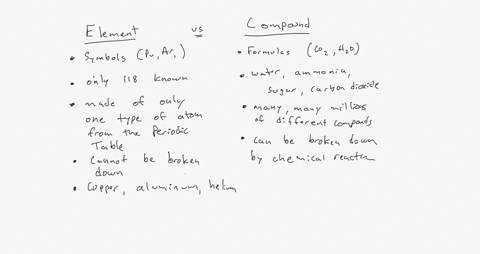 Element vs Compound
• Symbols (Pu, Ar,)
• only 118 known
• made of only
one type of atom
from the Periodic
Table
• Cannot be broken
down
• Copper, aluminum, helium
• Formulas (CO2, H2O)
• water, ammonia,
sugar, carbon dioxide
• many, many millions
of different compounds
• can be broken down
by chemical reaction